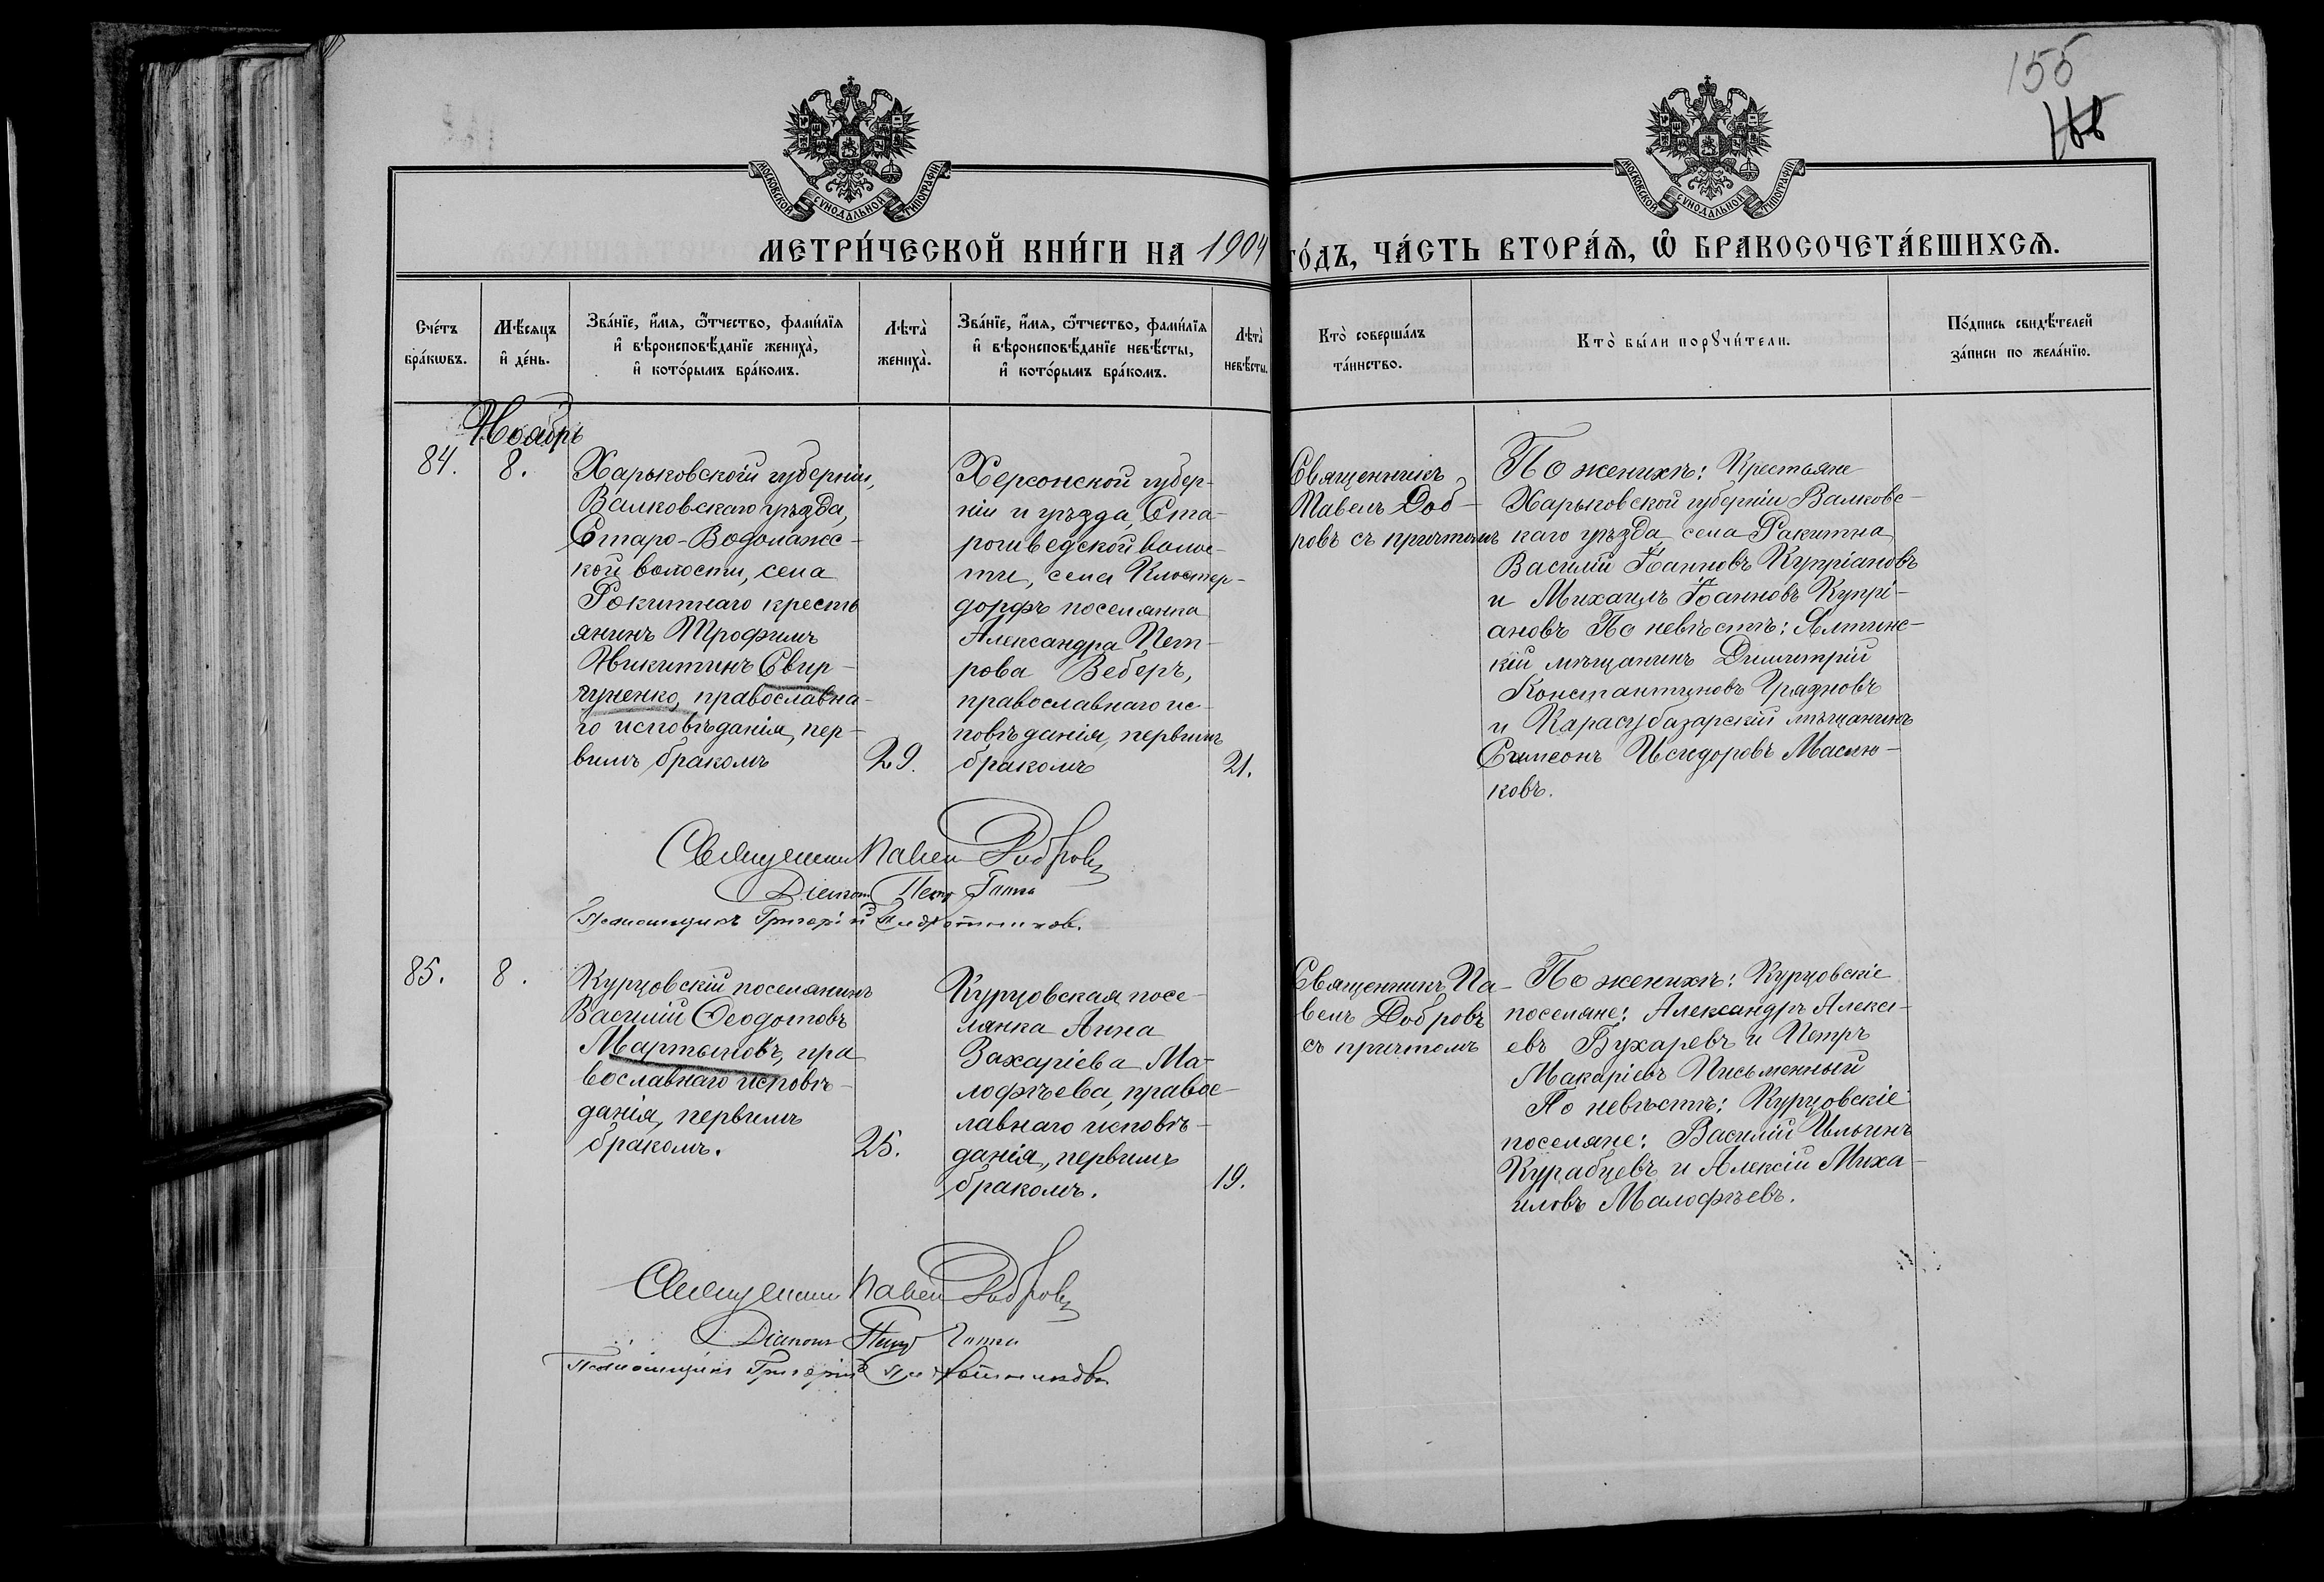 155
МОСКОВСКОЙ СУНОДАЛЬНОЙ ТИПОГРАФІИ.
МОСКОВСКОЙ СУНОДАЛЬНОЙ ТИПОГРАФІИ.
МЕТРИ́ЧЕСКОЙ КНИ́ГИ НА 1904 ГО́ДЪ, ЧА́СТЬ ВТОРА́Ѧ, Ѽ БРАКОСОЧЕТА́ВШИХСѦ.
Сче́тъ
бра́кѡвъ.
Мѣ́сяцъ
и҆ де́нь.
Зва́нїе, и҆́мѧ, ѻ҆́тчество, фами́лїѧ
и҆ вѣроисповѣ́данїе жениха̀,
и҆ кото́рымъ бра́комъ.
Лѣта̀
жениха̀.
Зва́нїе, и҆́мѧ, ѻ҆́тчество, фами́лїѧ
и҆ вѣроисповѣ́данїе невѣ́сты,
и҆ кото́рымъ бра́комъ.
Лѣта̀
невѣ́сты.
Кто̀ соверша́лъ
та́инство.
Кто̀ бы́ли порꙋчи́тели.
По́дпись свидѣ́телей
за́писи по жела́нїю.
Ноябрь
84.
8.
Харьковской губерніи,
Валковскаго уѣзда,
Старо-Водолажс-
кой волости, села
Ракитнаго кресть
янинъ Трофимъ
Никитинъ Свир-
гуненко, православна-
го исповѣданія, пер-
вымъ бракомъ
29.
Херсонской губер-
ніи и уѣзда, Ста-
рошведской волос-
ти, села Клостер-
дорфъ поселянка
Александра Пет-
рова Веберъ,
православнаго ис-
повѣданія, первымъ
бракомъ
21.
Священникъ
Павелъ Доб-
ровъ съ причтомъ
По женихѣ: Крестьяне
Харьковской губерніи Валковс-
каго уѣзда, села Ракитна
Василій Іанновъ Купріановъ
и Михаилъ Іанновъ Купрі-
ановъ По невѣстѣ: Ялтинс-
кій мѣщанинъ Димитрій
Константиновъ Грязновъ
и Карасубазарскій мѣщанинъ
Симеонъ Исидоровъ Маслю-
ковъ.
Священник Павел Добровъ
Діаконъ Петр
Псаломщикъ Григорій
85.
8.
Курцовскій поселянинъ
Василій Ѳеодотовъ
Мартыновъ, пра
вославнаго исповѣ-
данія, первымъ
бракомъ.
25.
Курцовская посе-
лянка Анна
Захаріева Ма-
лофѣева, правос-
лавнаго исповѣ-
данія, первымъ
бракомъ.
19.
Священникъ Па-
велъ Добровъ
съ причтомъ
По женихѣ: Курцовскіе
поселяне: Александръ Алексі-
евъ Бухаревъ и Петръ
Макаріевъ Письменный
По невѣстѣ: Курцовскіе
поселяне: Василій Ильинъ
Курабцевъ и Алексій Миха-
иловъ Малофѣевъ.
Священник Павел Добровъ
Діаконъ Петр
Псаломщикъ Григорій